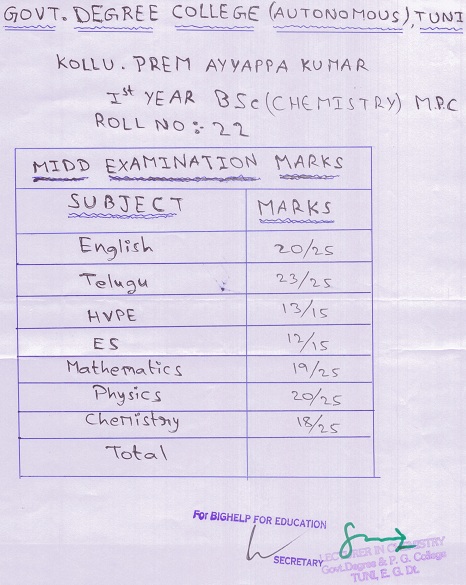 GOVT. DEGREE COLLEGE (AUTONOMOUS), TUNI
KOLLU. PREM AYYAPPA KUMAR
Ist YEAR BSc (CHEMISTRY) M.P.C
ROLL NO :- 22
MIDD EXAMINATION MARKS
SUBJECT MARKS
English 20/25
Telugu 23/25
HVPE 13/15
ES 12/15
Mathematics 19/25
Physics 20/25
Chemistry 18/25
Total
For BIGHELP FOR EDUCATION
SECRETARY
LECTURER IN CHEMISTRY
Govt.Degree & P. G. College
TUNI, E. G. Dt.